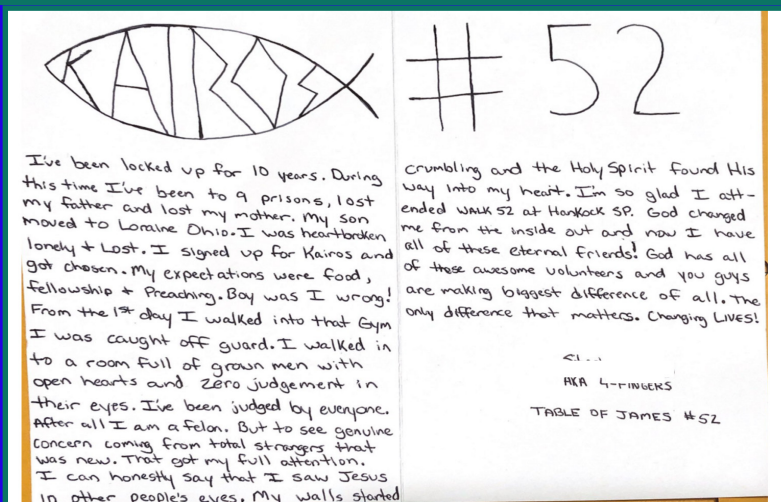 KAIROS
I've been locked up for 10 years. During
this time I've been to 9 prisons, lost
my father and lost my mother. My son
moved to Loraine Ohio. I was heartbroken
lonely + Lost. I signed up for Kairos and
got chosen. My expectations were food,
fellowship + Preaching. Boy was I wrong!
From the 1st day I walked into that Gym
I was caught off guard. I walked in
to a room full of grown men with
open hearts and zero judgement in
their eyes. I've been judged by everyone.
After all I am a felon. But to see genuine
concern coming from total strangers that
was new. That got my full attention.
I can honestly say that I saw Jesus
in other people's eyes. My walls started
#52
crumbling and the Holy Spirit found His
way into my heart. I'm so glad I att-
ended WALK 52 at Hankock SP. God changed
me from the inside out and now I have
all of these eternal friends! God has all
of these awesome volunteers and you guys
are making biggest difference of all. The
only difference that matters. Changing LIVES!
AKA 4-FINGERS
TABLE OF JAMES #52